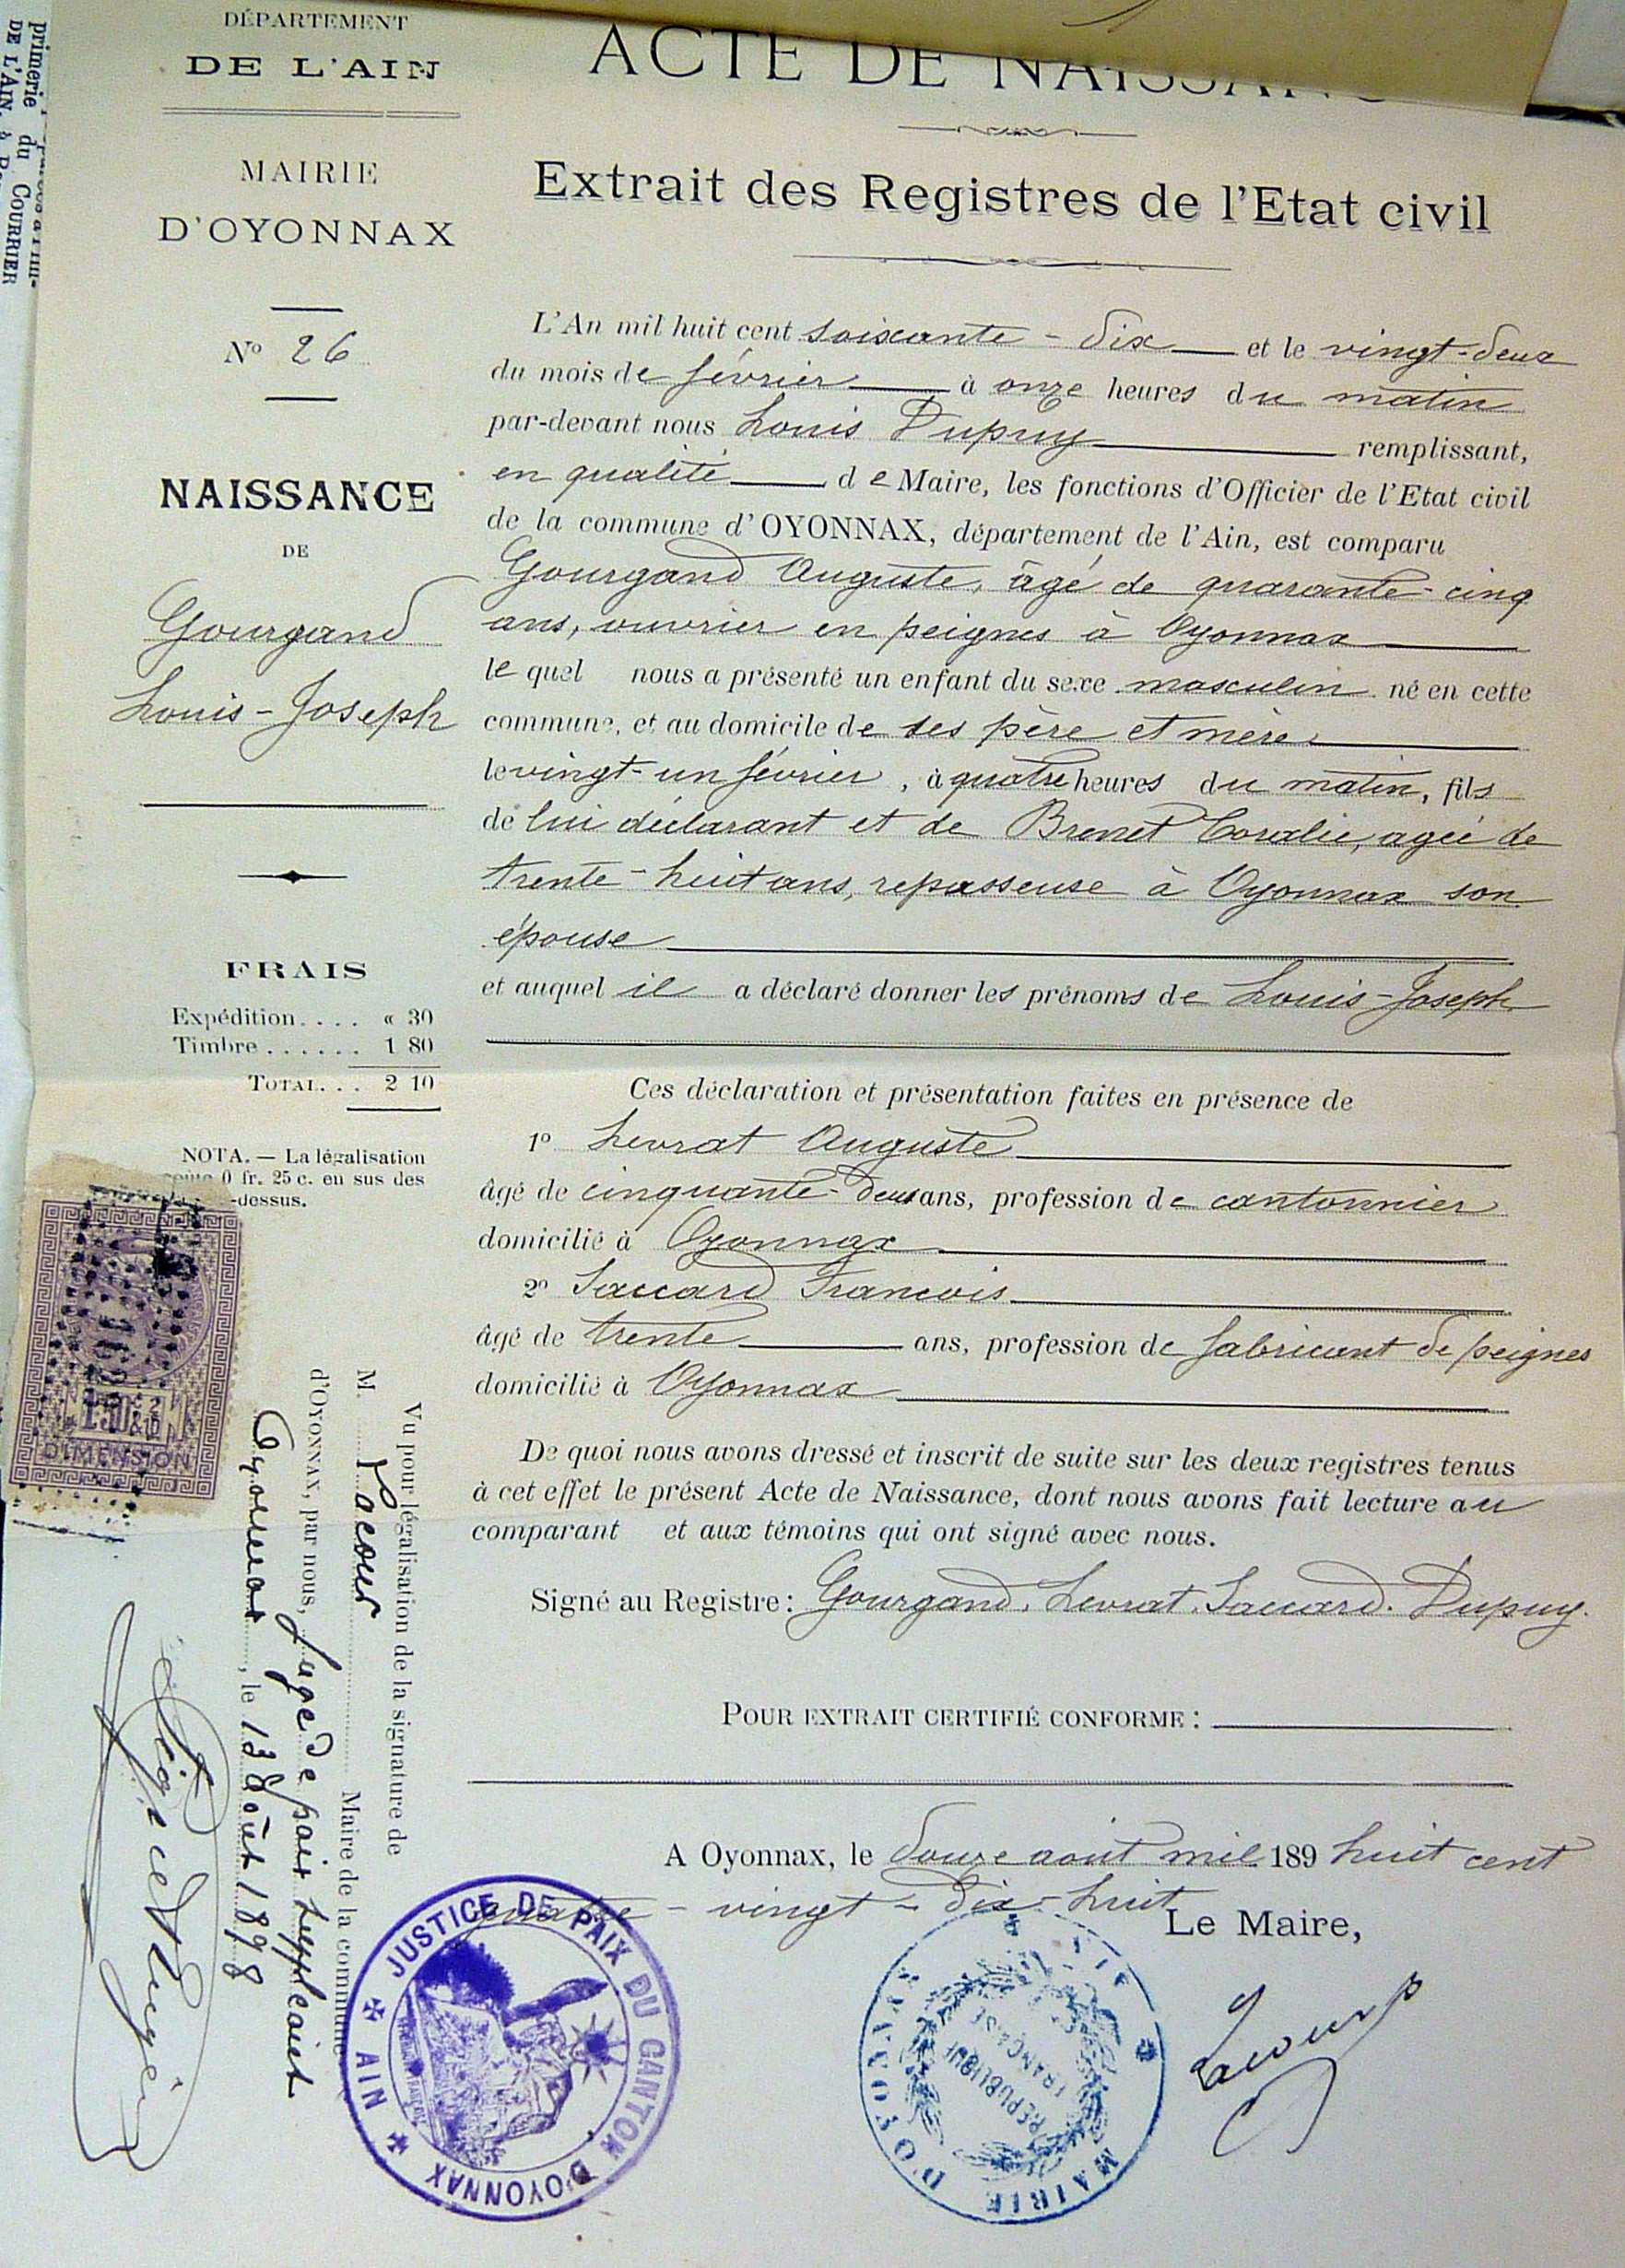 primerie du COURRIER
DE L'AIN, à
DÉPARTEMENT
DE L'AIN
MAIRIE
D'OYONNAX
Nº 26
NAISSANCE
DE
Gourgand
Louis-Joseph
FRAIS
Expédition.... « 30
Timbre...... 1 80
TOTAL... 2 10
NOTA. — La légalisation
coûte 0 fr. 25 c. en sus des
-dessus.
DIMENSION
ACTE DE NAISSANC
Extrait des Registres de l'Etat civil
L'An mil huit cent soixante - dix et le vingt-deux
du mois de février à onze heures du matin
par-devant nous Louis Dupuy remplissant,
en qualité de Maire, les fonctions d'Officier de l'Etat civil
de la commune d'OYONNAX, département de l'Ain, est comparu
Gourgand Auguste, âgé de quarante-cinq
ans, ouvrier en peignes à Oyonnax
le quel nous a présenté un enfant du sexe masculin né en cette
commune, et au domicile de ses père et mère
le vingt-un février, à quatre heures du matin, fils
de lui déclarant et de Brenet Coralie, agée de
trente-huit ans, repasseuse à Oyonnax son
épouse
et auquel il a déclaré donner les prénoms de Louis-Joseph
Ces déclaration et présentation faites en présence de
1º Levrat Auguste
âgé de cinquante-deux ans, profession de cantonnier
domicilié à Oyonnax
2º Jaccard Francois
âgé de trente ans, profession de fabricant de peignes
domicilié à Oyonnax
De quoi nous avons dressé et inscrit de suite sur les deux registres tenus
à cet effet le présent Acte de Naissance, dont nous avons fait lecture au
comparant et aux témoins qui ont signé avec nous.
Signé au Registre: Gourgand, Levrat, Jaccard. Dupuy.
POUR EXTRAIT CERTIFIÉ CONFORME :
A Oyonnax, le douze août mil 189 huit cent
quatre - vingt - dix-huit
Le Maire,
Lacour
Vu pour légalisation de la signature de
M. Lacour Maire de la commune
d'OYONNAX, par nous, Juge de paix suppléant
Oyonnax, le 13 août 1898
JUSTICE DE PAIX DU CANTON D'OYONNAX
AIN
MAIRIE D'OYONNAX
RÉPUBLIQUE
FRANÇAISE